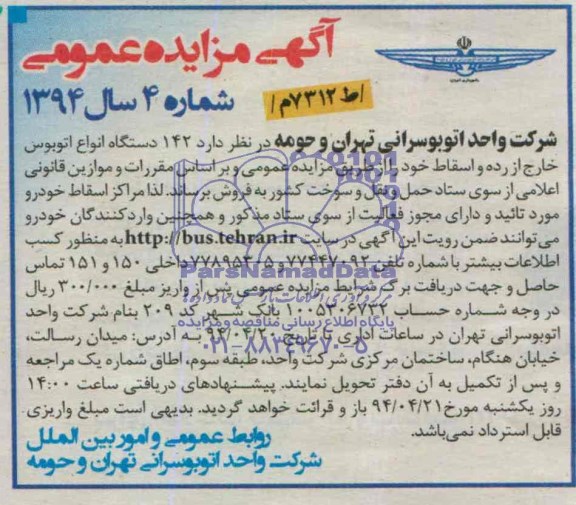 آگهی مزایده عمومی
شماره ۴ سال ۱۳۹۴
/ط ۷۳۱۲م/
شرکت واحد اتوبوسرانی تهران و حومه در نظر دارد ۱۴۲ دستگاه انواع اتوبوس
خارج از رده و اسقاط خود را از طریق مزایده عمومی و بر اساس مقررات و موازین قانونی
اعلامی از سوی ستاد حمل و نقل و سوخت کشور به فروش برساند. لذا مراکز اسقاط خودرو
مورد تائید و دارای مجوز فعالیت از سوی ستاد مذکور و همچنین وارد کنندگان خودرو
می‌توانند ضمن رویت این آگهی در سایت http://bus.tehran.ir به منظور کسب
اطلاعات بیشتر با شماره تلفن ۷۷۴۴۷۰۹۲ و داخلی ۱۵۰ و ۱۵۱ تماس
حاصل و جهت دریافت برگ شرایط مزایده عمومی پس از واریز مبلغ ۳۰۰/۰۰۰ ریال
در وجه شماره حساب ۱۰۰۵۳۰۶۷۲۲ بانک شهر کد ۲۰۹ بنام شرکت واحد
اتوبوسرانی تهران در ساعات اداری تا تاریخ به آدرس: میدان رسالت،
خیابان هنگام، ساختمان مرکزی شرکت واحد، طبقه سوم، اطاق شماره یک مراجعه
و پس از تکمیل به آن دفتر تحویل نمایند. پیشنهادهای دریافتی ساعت ۱۴:۰۰
روز یکشنبه مورخ ۹۴/۰۴/۲۱ باز و قرائت خواهد گردید. بدیهی است مبلغ واریزی
قابل استرداد نمی‌باشد.
روابط عمومی و امور بین الملل
شرکت واحد اتوبوسرانی تهران و حومه
ParsNamadData
پایگاه اطلاع رسانی مناقصه و مزایده
۰۲۱-۸۸۳۴۹۶۷۰-۵